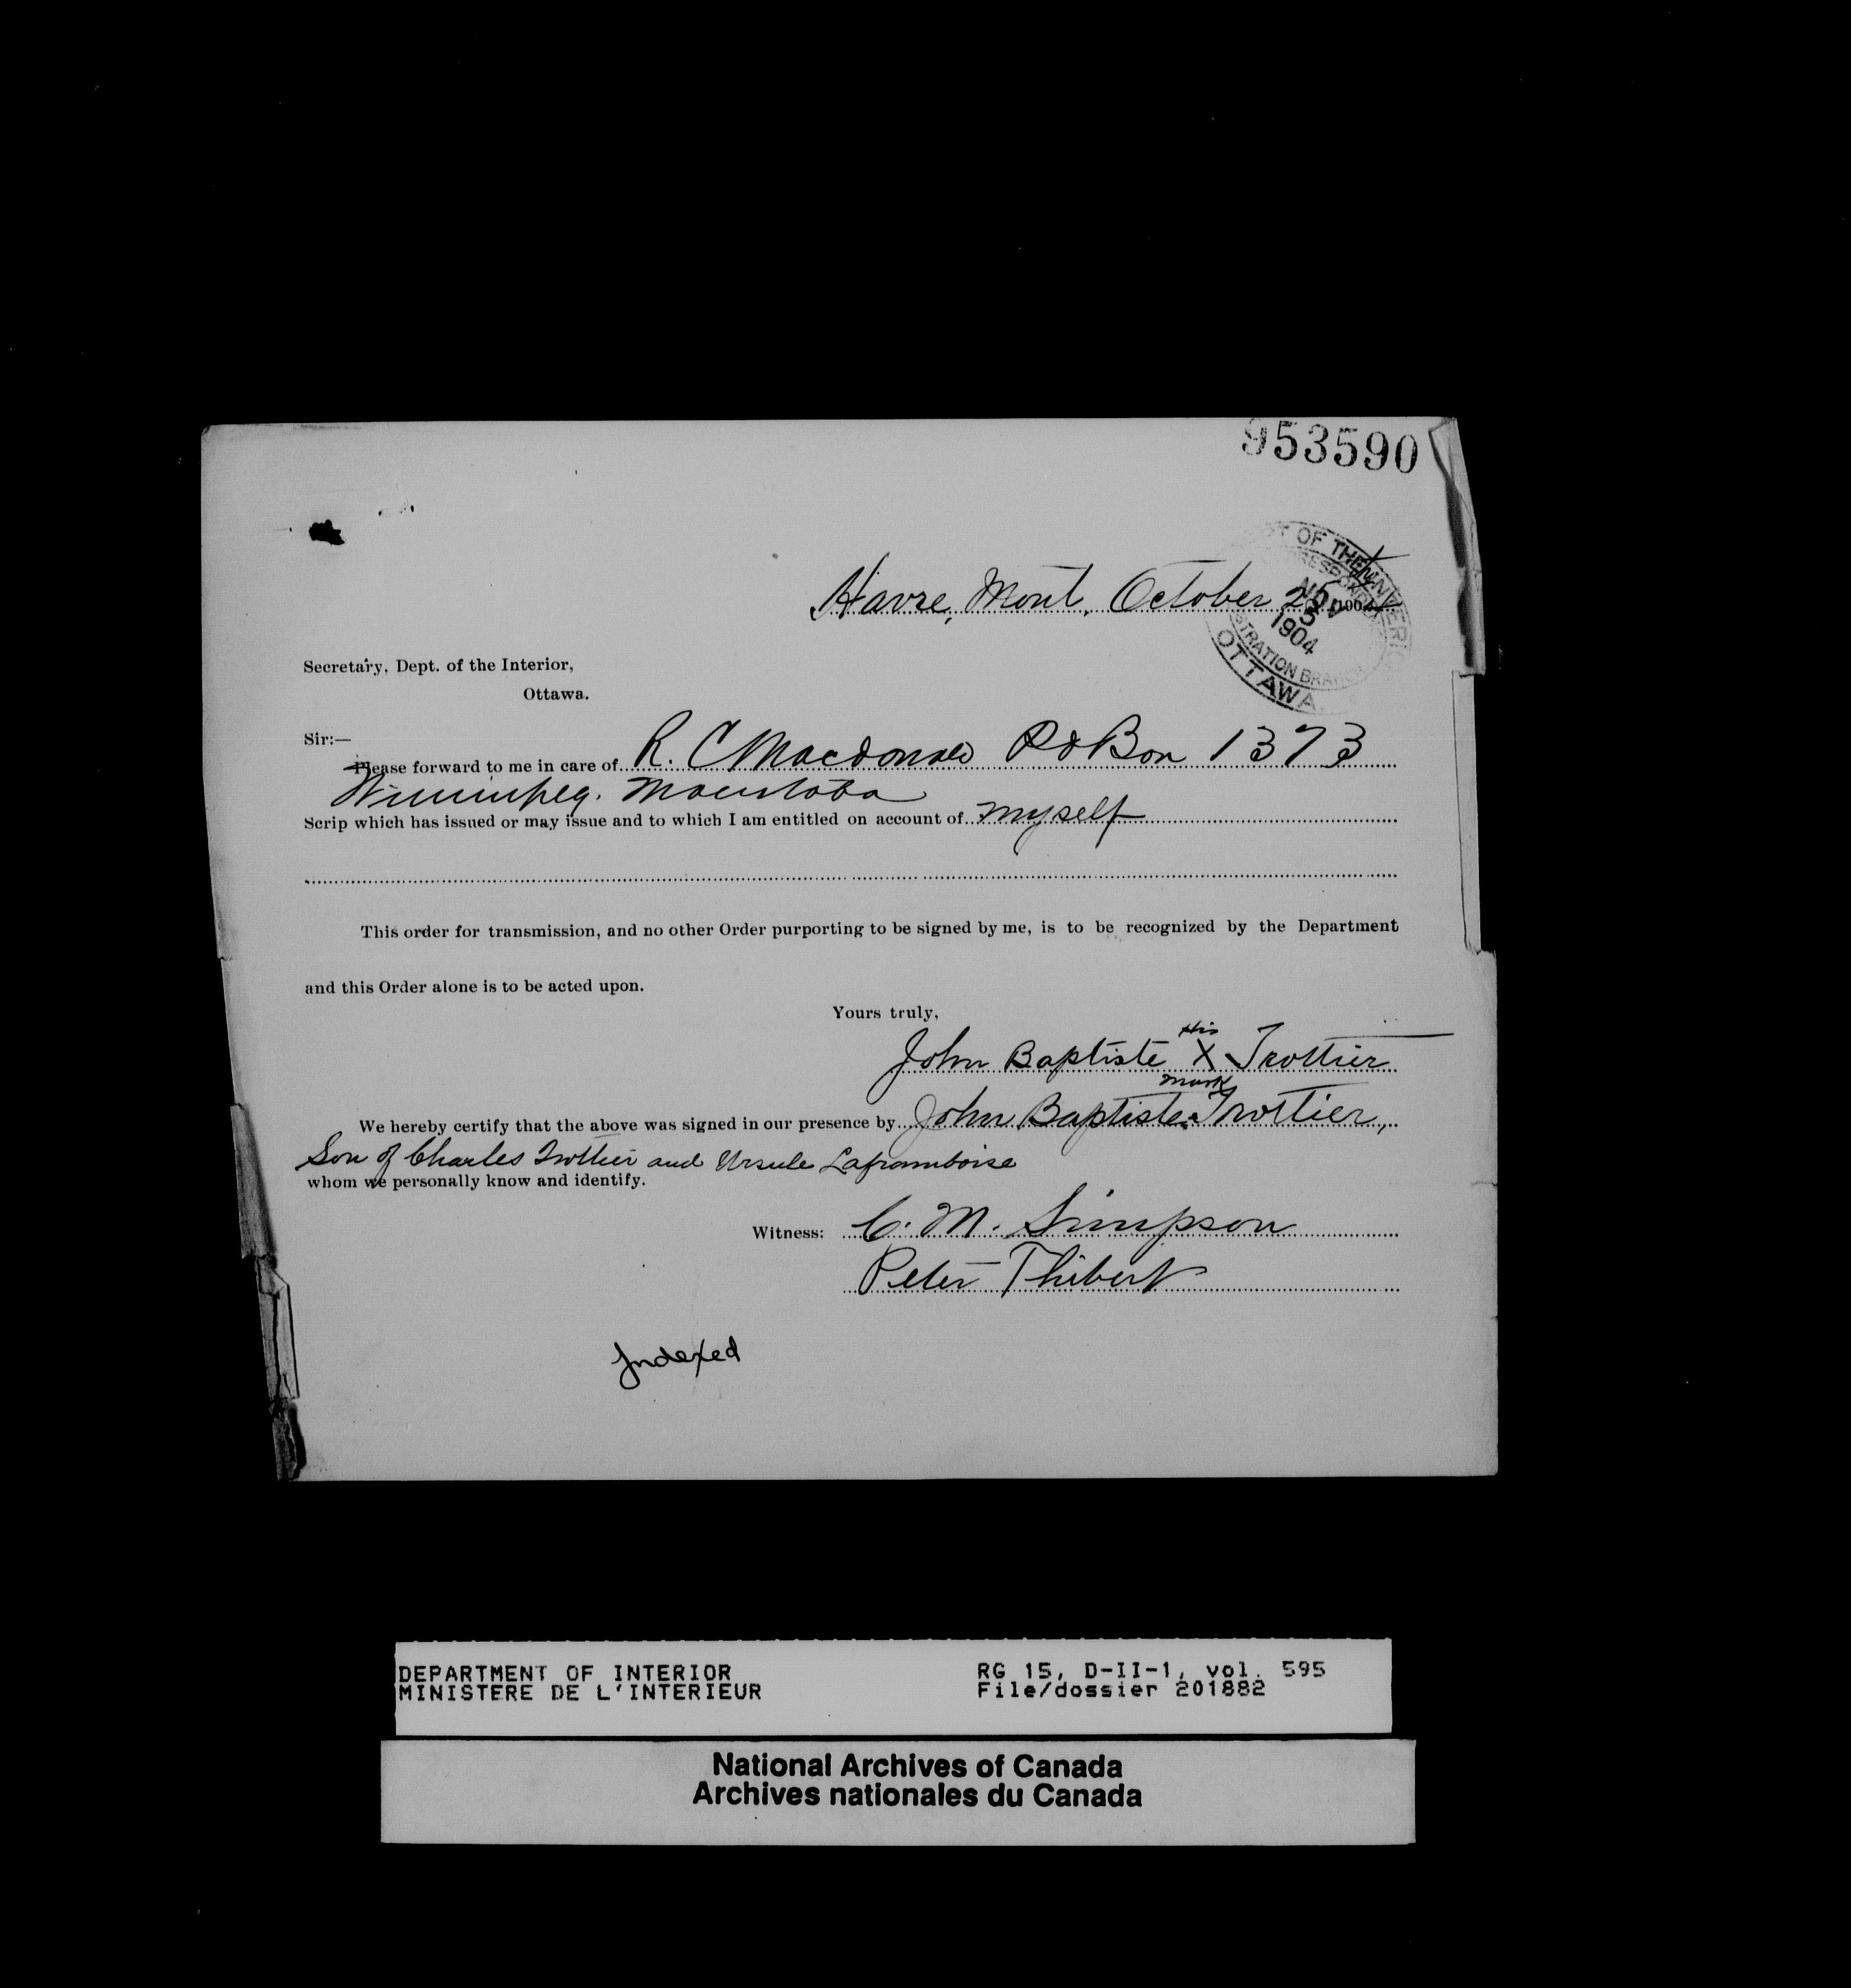 953590
DEPT OF THE INTERIOR
NOV 5 1904
REGISTRATION BRANCH
OTTAWA
Havre, Mont, October 25th 1904
Secretary, Dept. of the Interior,
Ottawa.
Sir:—
Please forward to me in care of R. C Macdonald P O Box 1373
Winnipeg. Manitoba
Scrip which has issued or may issue and to which I am entitled on account of myself
This order for transmission, and no other Order purporting to be signed by me, is to be recognized by the Department
and this Order alone is to be acted upon.
Yours truly,
His
John Baptiste X Trottier
mark
We hereby certify that the above was signed in our presence by John Baptiste Trottier,
Son of Charles Trottier and Ursule Laframboise
whom we personally know and identify.
Witness: C. M. Simpson
Peter Thibert
Indexed
DEPARTMENT OF INTERIOR RG 15, D-II-1, vol. 595
MINISTERE DE L'INTERIEUR File/dossier 201882
National Archives of Canada
Archives nationales du Canada